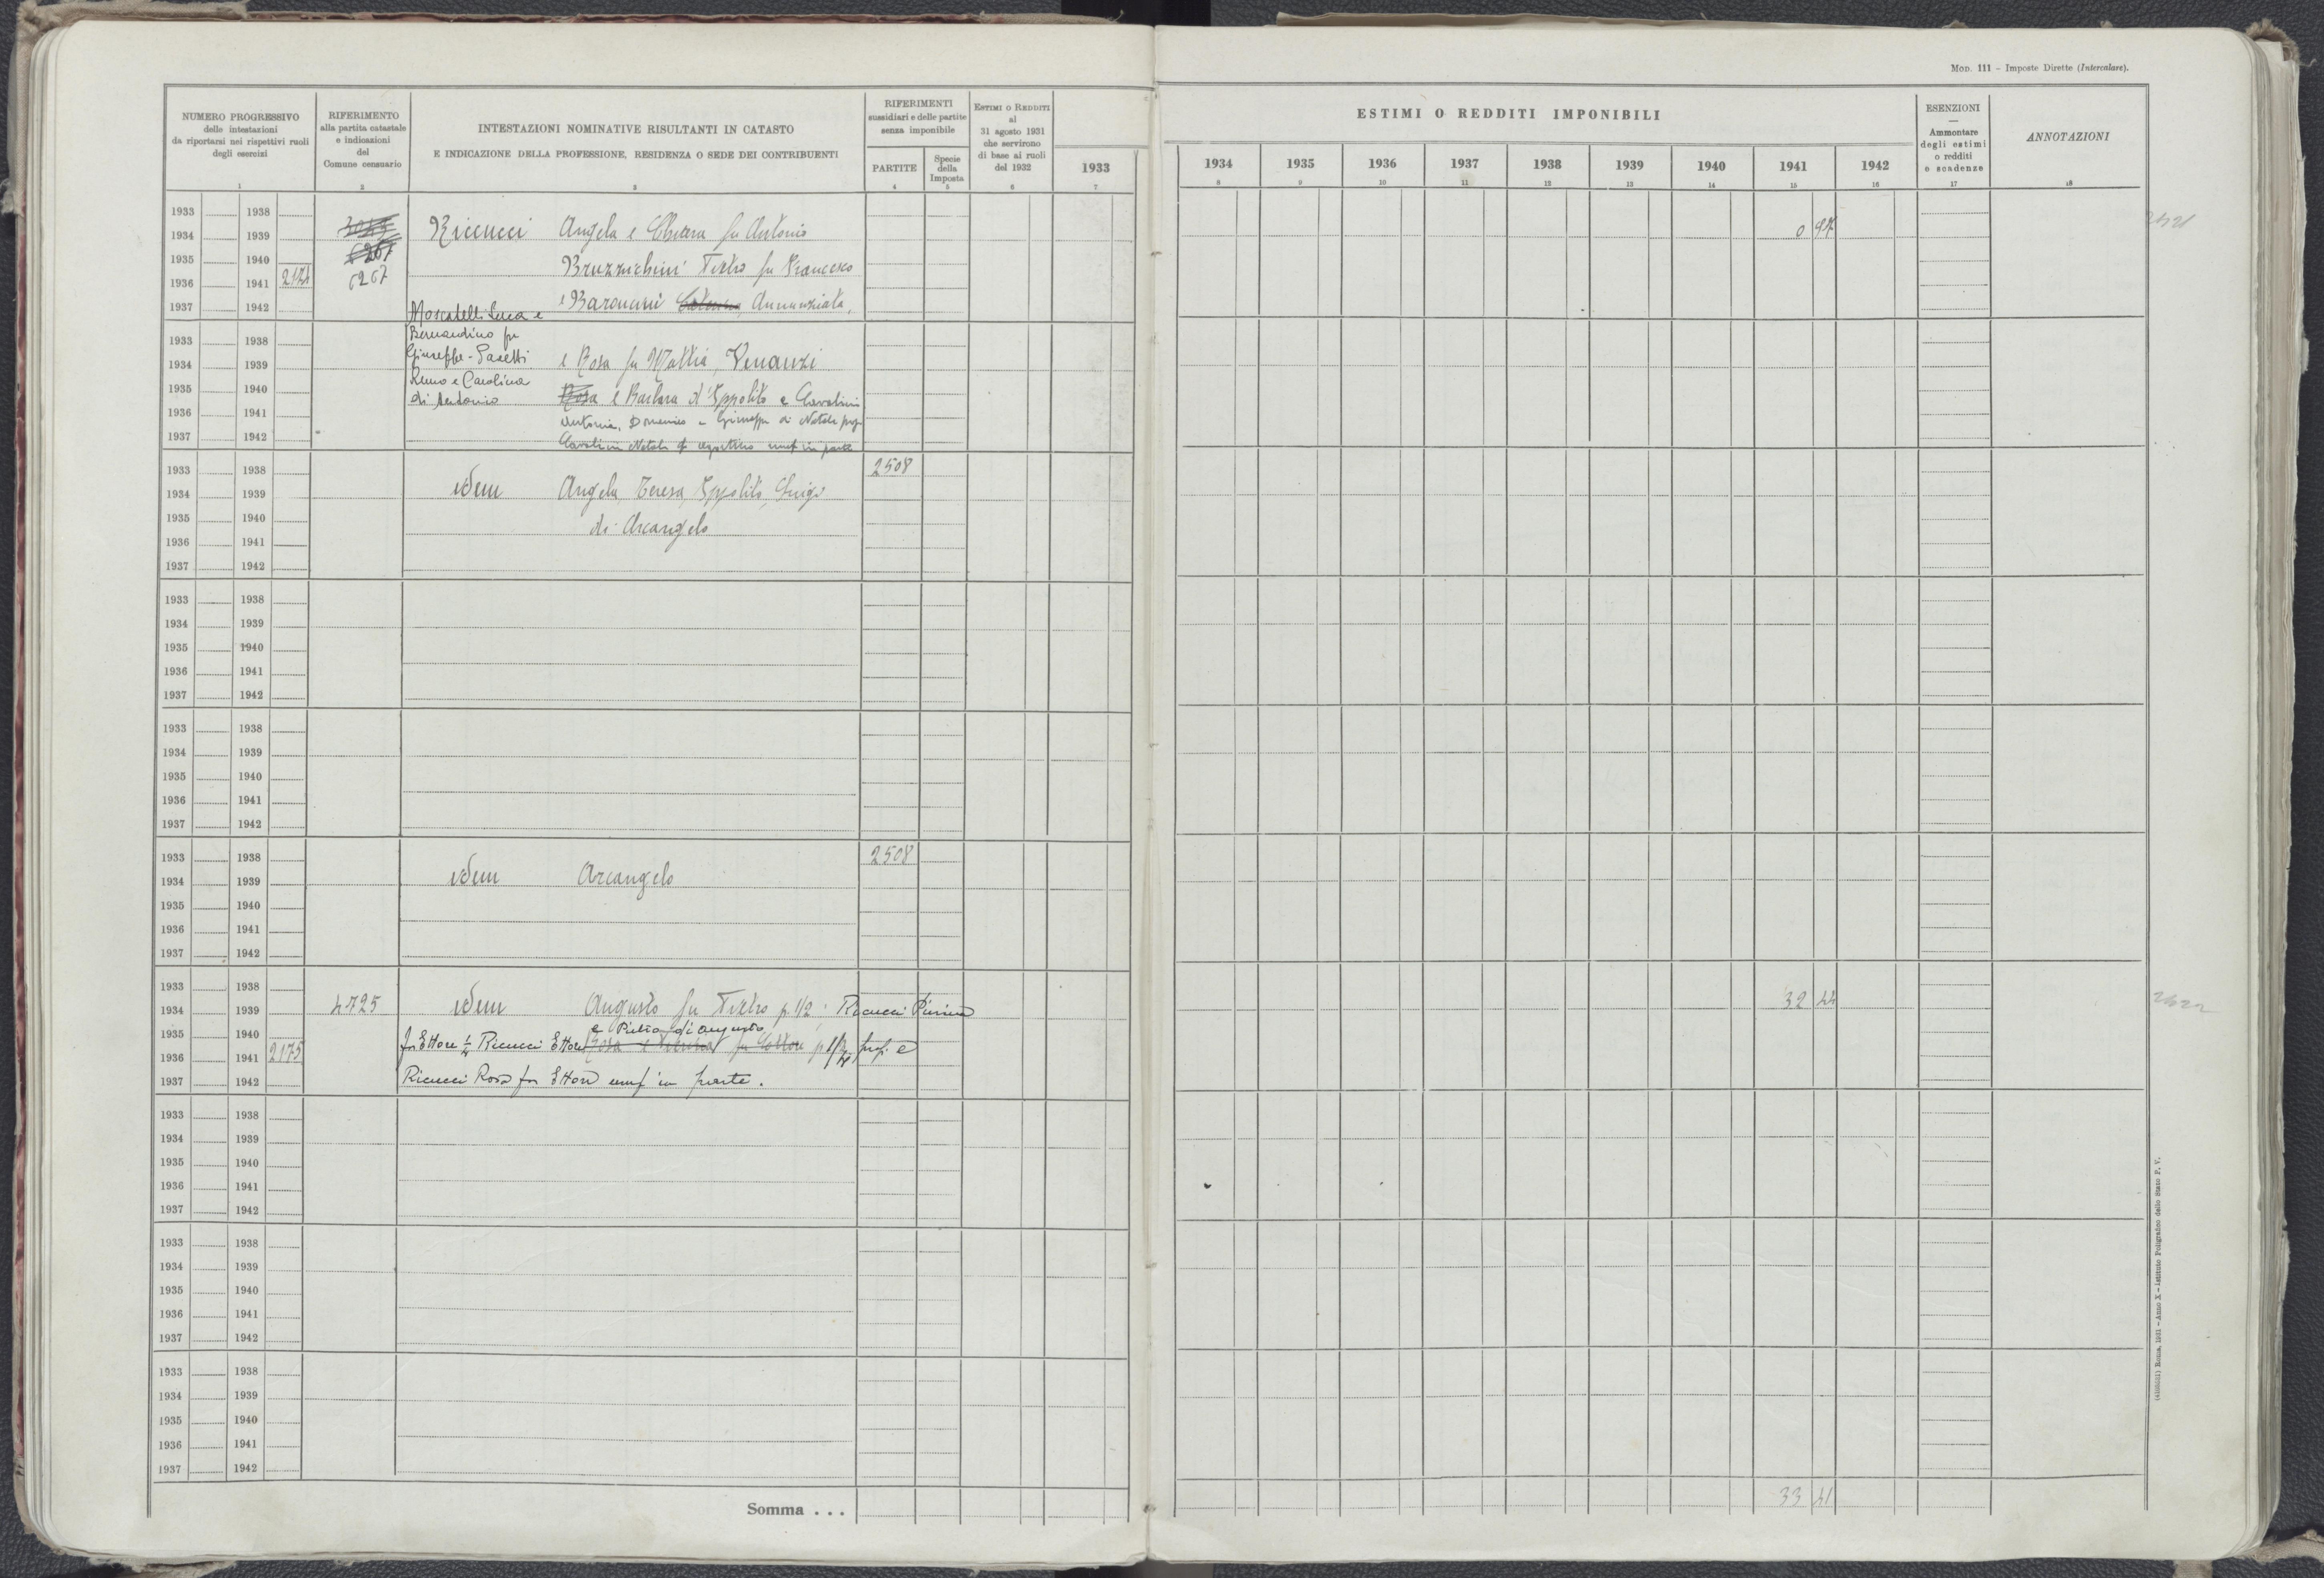 MOD. 111 – Imposte Dirette (Intercalare).
NUMERO PROGRESSIVO
delle intestazioni
da riportarsi nei rispettivi ruoli
degli esercizi
1
RIFERIMENTO
alla partita catastale
e indicazioni
del
Comune censuario
2
INTESTAZIONI NOMINATIVE RISULTANTI IN CATASTO
E INDICAZIONE DELLA PROFESSIONE, RESIDENZA O SEDE DEI CONTRIBUENTI
3
RIFERIMENTI
sussidiari e delle partite
senza imponibile
PARTITE
4
Specie
della
Imposta
5
ESTIMI O REDDITI
al
31 agosto 1931
che servirono
di base ai ruoli
del 1932
6
1933
7
ESTIMI O REDDITI IMPONIBILI
1934 1935 1936 1937 1938 1939 1940 1941 1942
8 9 10 11 12 13 14 15 16
ESENZIONI
—
Ammontare
degli estimi
o redditi
e scadenze
17
ANNOTAZIONI
18
1933 1938
1934 1939 Riccucci Angela e Chiara fu Antonio 0 97
1935 1940 6267 Bruzzichini Pietro fu Francesco
1936 1941 2174 6267
1937 1942 e Baroncini Annunziata,
Moscatelli Luca e
1933 1938 Bernardino fu
Giuseppe -
1934 1939 e Rosa fu Mattia, Venanzi
1935 1940 Remo e Carolina
di Antonio Rosa e Barbara d'Ippolito e Cavalini
1936 1941 Antonia, Domenico e Giuseppe di Natale prop
1937 1942 Cavalini Natale fu Agostino usuf in parte
1933 1938 2508
1934 1939 idem Angela, Teresa, Ippolito, Luigi
1935 1940 di Arcangelo
1936 1941
1937 1942
1933 1938
1934 1939
1935 1940
1936 1941
1937 1942
1933 1938
1934 1939
1935 1940
1936 1941
1937 1942
1933 1938 2508
1934 1939 idem Arcangelo
1935 1940
1936 1941
1937 1942
1933 1938
1934 1939 4725 idem Augusto fu Pietro p. 1/2; Riccucci Pierina 32 44
1935 1940 e Pietro di Augusto
1936 1941 2175 fu Ettore 1/4 Riccucci Ettore Rosa e fu Ettore prop. e
1937 1942 Ricucci Rosa fu Ettore usuf in parte.
1933 1938
1934 1939
1935 1940
1936 1941
1937 1942
1933 1938
1934 1939
1935 1940
1936 1941
1937 1942
1933 1938
1934 1939
1935 1940
1936 1941
1937 1942
Somma . . . 33 41
Roma, 1931 – Anno X – Istituto Poligrafico dello Stato P. V.